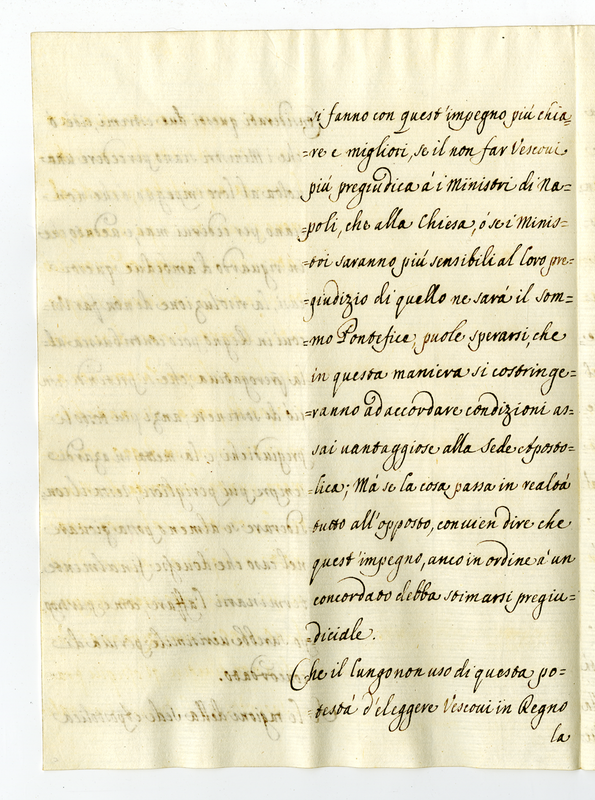 si fanno con quest'impegno più chia=
=re e migliori, se il non far Vescovi
più pregiudica á i Ministri di Na=
=poli, che alla Chiesa, ó se i Minis=
=tri saranno più sensibili al loro pre=
=giudizio di quello ne sará il som=
=mo Pontefice, puole sperarsi, che
in questa maniera si costringe=
=ranno ad accordare condizioni as=
sai vantaggiose alla Sede Aposto=
=lica; Má se la cosa passa in realtá
tutto all'opposto, convien dire che
quest'impegno, anco in ordine á un
concordato debba stimarsi pregiu=
=diciale.
Che il lungo non uso di questa po=
=testá d'eleggere Vescovi in Regno
la